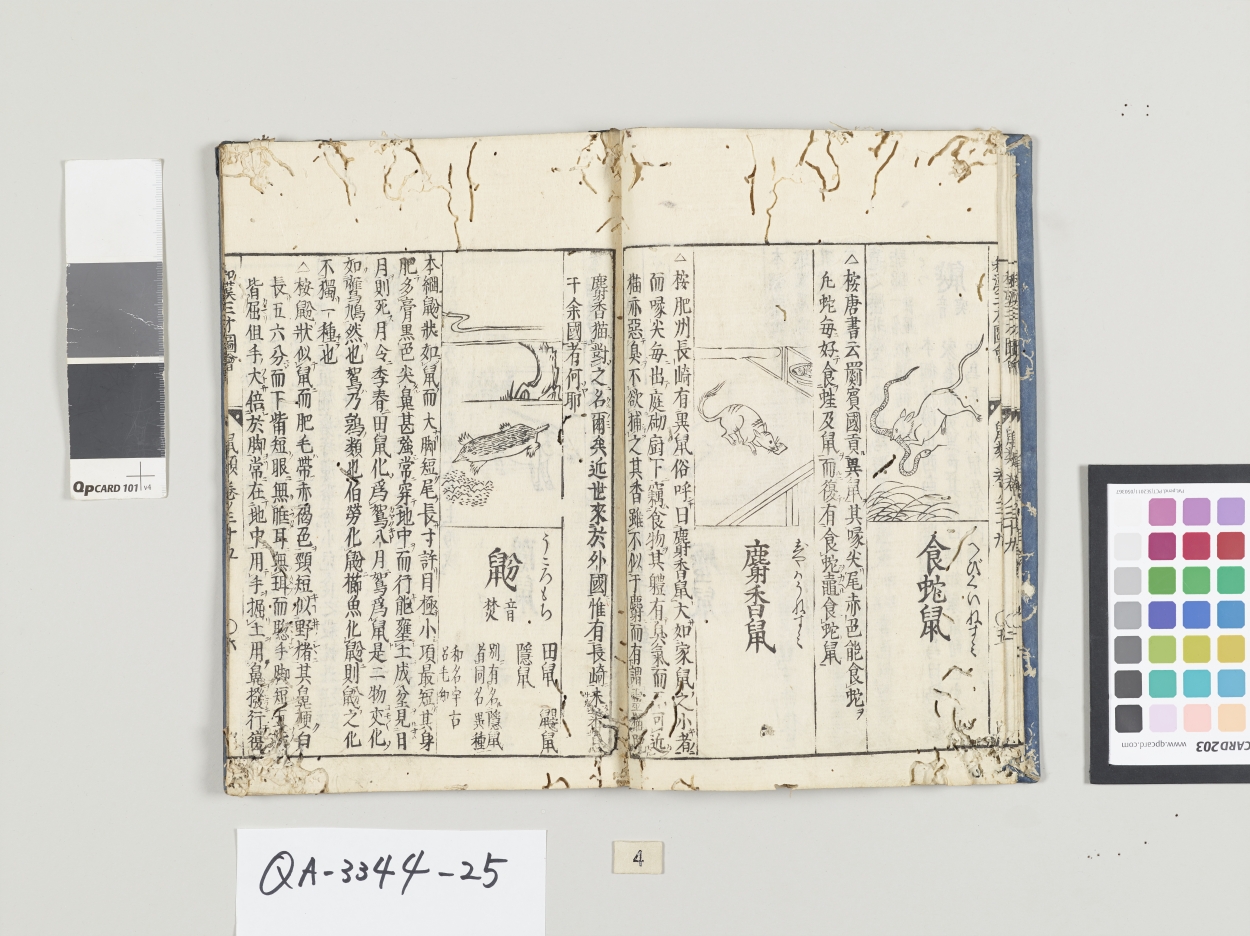 食蛇鼠
へびくいねすミ
△按唐書云罽賓國貢異鼠其喙尖尾赤色能食蛇ヲ
凡蛇毎好食蛙及鼠而復有食蛇鼃食蛇鼠
麝香鼠
△按肥州長崎有異鼠俗呼曰麝香鼠大如家鼠之小者
而喙尖毎出庭砌厨下竊食物其軆有臭氣而不可近
猫亦惡臭不欲捕之其香雖不似于麝而有謂
麝香猫對之名爾矣近世來於外國惟有長崎未
于余國者何耶
鼢
音
焚
うころもち
田鼠
鼹鼠
隱鼠
別有名隱鼠
者同名異種
和名宇古
呂毛知
本綱鼢狀如鼠而大脚短尾長寸許目極小項最短其身
肥多膏黒色尖鼻甚強常穿地中而行能壅土成坌見日
月則死月令季春田鼠化爲鴽八月鴽爲鼠是二物交化
如鷹鳩然也鴽乃鶉類也伯勞化鼢鯔魚化鼢則鼢之化
不獨一種也
△按鼢狀似鼠而肥毛帶赤褐色頸短似野猪其鼻硬白
長五六分而下觜短眼無眶耳無珥而聡手脚短
皆屈但手大倍於脚常在地中用手掘土用鼻撥行復
和漢三才圖會
鼠類
卷ノ三十九
〇六
QA-3344-25
4
QPCARD 101 v4
QPCARD 203
www.qpcard.com